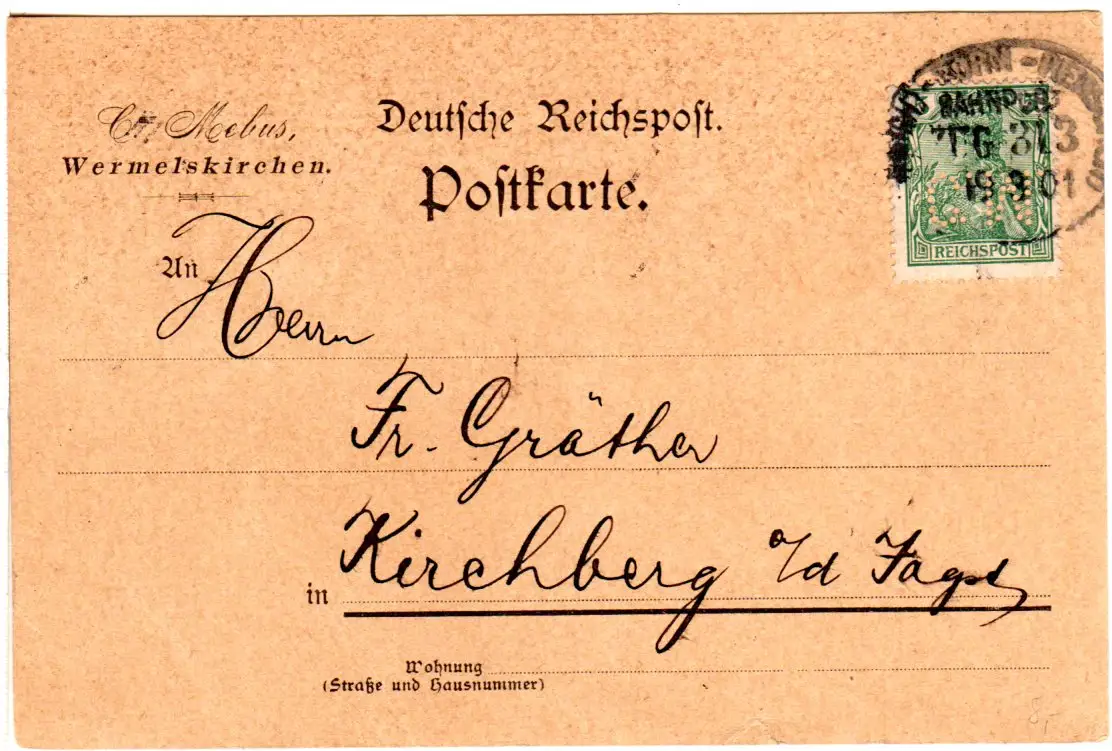 Mebus,
Wermelskirchen.
Deutsche Reichspost.
Postkarte.
BAHNPOST
ZUG 313
19 3 01
REICHSPOST
An
Herrn
Fr. Gräther
in Kirchberg o/d Jagst
Wohnung
(Straße und Hausnummer)
8,-